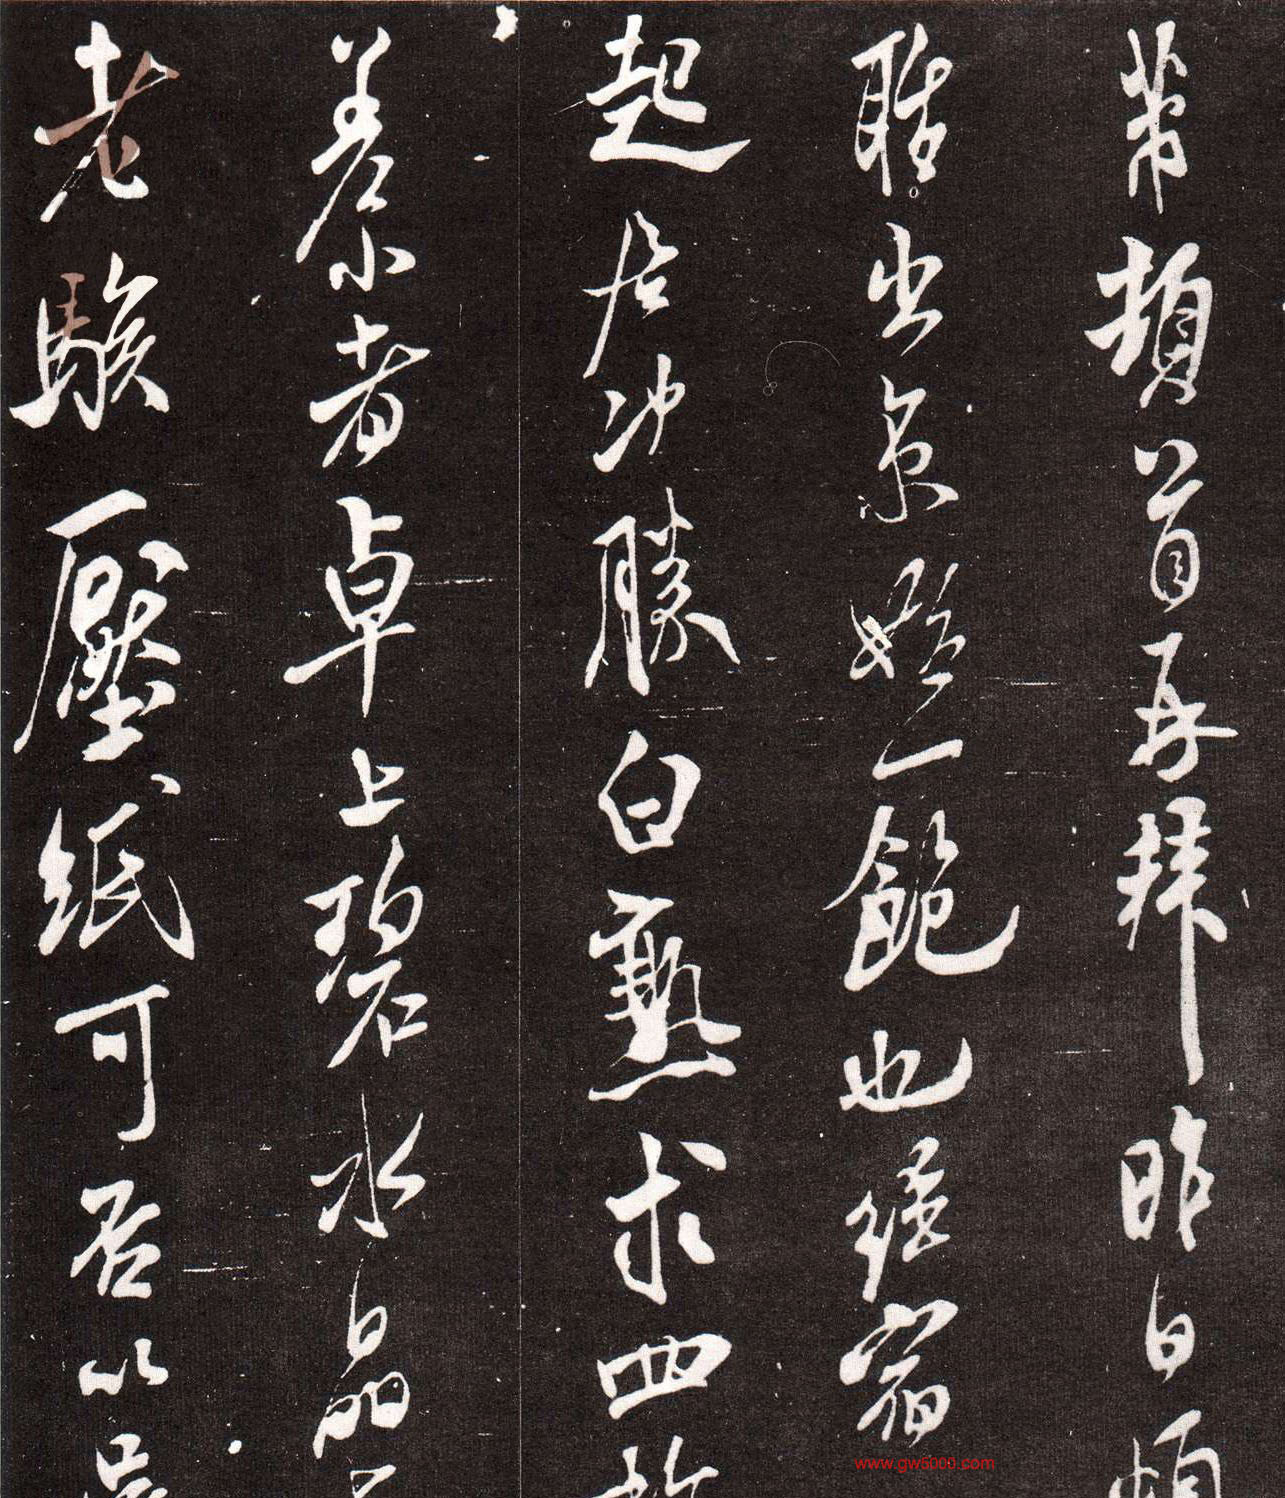 芾頓首再拜昨日
聒出京殆一飽也經宿
起居冲勝白求四
差小者卓上碧水晶
老駭壓紙可否以
www.gw5000.com